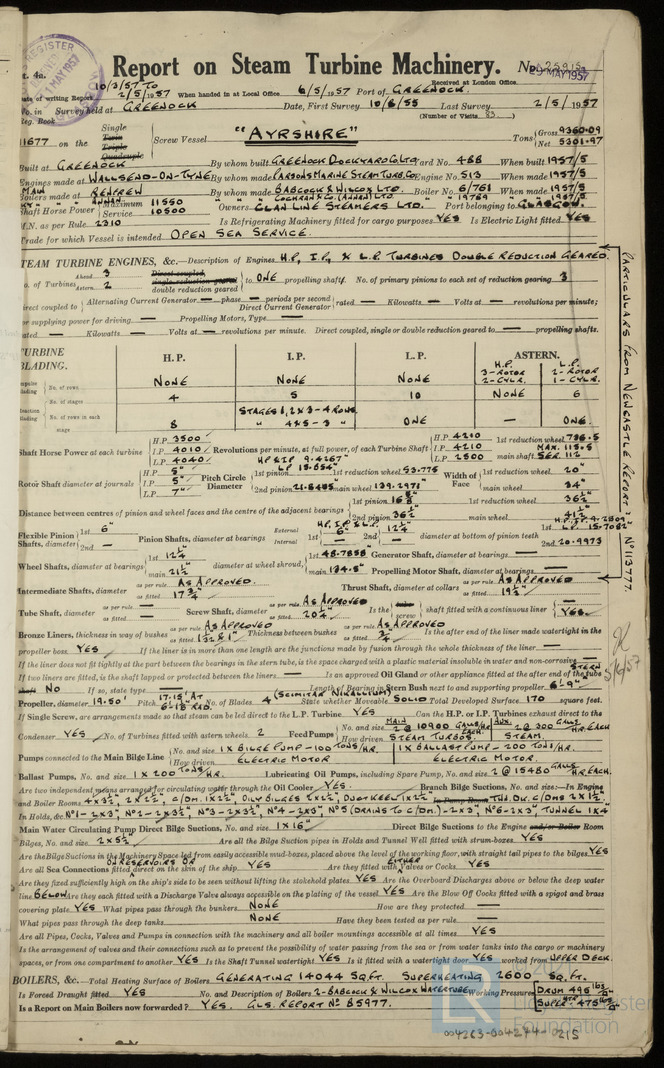 Rpt. 4a.
Report on Steam Turbine Machinery. No. 25915
29 MAY 1957
10/3/57 TO
Received at London Office
Date of writing Report 2/5/1957 When handed in at Local Office 6/5/1957 Port of GREENOCK.
No. in Survey held at GREENOCK Date, First Survey 10/6/55 Last Survey 2/5/1957
Reg. Book (Number of Visits 83)
11677 on the Single Twin Triple Quadruple Screw Vessel "AYRSHIRE" Tons Gross 9360.09 Net 5301.97
Built at GREENOCK By whom built GREENOCK DOCKYARD CO. LTD Yard No. 488 When built 1957/5
Engines made at WALLSEND-ON-TYNE By whom made PARSONS MARINE STEAM TURB. CO. Engine No. 513 When made 1957/5
MAIN Boilers made at RENFREW By whom made BABCOCK & WILCOX LTD. Boiler No. 6/761 When made 1957/5
" " ANNAN " " COCHRAN & CO. (ANNAN) LTD " 19789 " 1957/5
Shaft Horse Power Maximum 11550 Service 10500 Owners CLAN LINE STEAMERS LTD. Port belonging to GLASGOW.
M.N. as per Rule 2310 Is Refrigerating Machinery fitted for cargo purposes YES Is Electric Light fitted YES
Trade for which Vessel is intended OPEN SEA SERVICE.
STEAM TURBINE ENGINES, &c.—Description of Engines H.P., I.P., & L.P. TURBINES DOUBLE REDUCTION GEARED.
No. of Turbines Ahead 3 Astern 2 Direct coupled, single reduction geared double reduction geared to ONE propelling shaft. No. of primary pinions to each set of reduction gearing 3
direct coupled to Alternating Current Generator — phase — periods per second Direct Current Generator rated — Kilowatts — Volts at — revolutions per minute;
for supplying power for driving — Propelling Motors, Type —
rated — Kilowatts — Volts at — revolutions per minute. Direct coupled, single or double reduction geared to — propelling shafts.
TURBINE BLADING. H.P. I.P. L.P. ASTERN.
H.P. 3-ROTOR 2-CYLR. L.P. 2-ROTOR 1-CYLR.
Impulse Blading No. of rows NONE NONE NONE
Reaction Blading No. of stages 4 5 10 NONE 6
No. of rows in each stage 8 STAGES 1, 2 & 3 - 4 ROWS " 4 & 5 - 3 " ONE — ONE.
Shaft Horse Power at each turbine H.P. 3500 I.P. 4010 L.P. 4040 Revolutions per minute, at full power, of each Turbine Shaft H.P. 4210 I.P. 4210 L.P. 2500 1st reduction wheel 736.5 main shaft MAX. 115.5 SER. 112
Rotor Shaft diameter at journals H.P. 5" I.P. 5" L.P. 7" Pitch Circle Diameter 1st pinion HP & IP 9.4267" LP 15.854" 1st reduction wheel 53.775 2nd pinion 21.8435 main wheel 139.2971" Width of Face 1st reduction wheel 20" main wheel 34"
Distance between centres of pinion and wheel faces and the centre of the adjacent bearings 1st pinion 16⅝" 2nd pinion 36½" 1st reduction wheel 36½" main wheel 41½"
Flexible Pinion Shafts, diameter 1st 6" 2nd — Pinion Shafts, diameter at bearings External Internal 1st H.P., I.P. & L.P. 6" — 2nd 12¼" — diameter at bottom of pinion teeth 1st H.P., I.P. 9.2809 L.P. 15.7082 2nd 20.9973
Wheel Shafts, diameter at bearings 1st 12¼" main 21½" diameter at wheel shroud, 1st 48.7858" main 134.5" Generator Shaft, diameter at bearings — Propelling Motor Shaft, diameter at bearings —
Intermediate Shafts, diameter as per rule AS APPROVED. as fitted 17¾" Thrust Shaft, diameter at collars as per rule AS APPROVED as fitted 19½"
Tube Shaft, diameter as per rule — as fitted — Screw Shaft, diameter as per rule AS APPROVED as fitted 20¼" Is the tube screw shaft fitted with a continuous liner YES.
Bronze Liners, thickness in way of bushes as per rule AS APPROVED Thickness between bushes as per rule AS APPROVED as fitted ¾" Is the after end of the liner made watertight in the
propeller boss YES If the liner is in more than one length are the junctions made by fusion through the whole thickness of the liner —
If the liner does not fit tightly at the part between the bearings in the stern tube, is the space charged with a plastic material insoluble in water and non-corrosive —
If two liners are fitted, is the shaft lapped or protected between the liners — Is an approved Oil Gland or other appliance fitted at the after end of the STERN tube
shaft NO If so, state type — Length of Bearing in Stern Bush next to and supporting propeller 6'-9"
Propeller, diameter 19.50' Pitch 17.15' AT 6.18 RAD. No. of Blades 4 (SCIMITAR NIKALIUM) State whether Moveable SOLID Total Developed Surface 170 square feet.
If Single Screw, are arrangements made so that steam can be led direct to the L.P. Turbine YES Can the H.P. or I.P. Turbines exhaust direct to the
Condenser YES No. of Turbines fitted with astern wheels 2 Feed Pumps No. and size MAIN 2 @ 10900 GALLS/HR EACH. AUX. 2 @ 300 GALLS. HR. EACH How driven STEAM TURBOS. STEAM.
Pumps connected to the Main Bilge Line No. and size 1 X BILGE PUMP - 100 TONS/HR. 1 X BALLAST PUMP - 200 TONS/HR. How driven ELECTRIC MOTOR ELECTRIC MOTOR.
Ballast Pumps, No. and size 1 X 200 TONS/HR. Lubricating Oil Pumps, including Spare Pump, No. and size 2 @ 15480 GALLS HR. EACH.
Are two independent means arranged for circulating water through the Oil Cooler YES. Branch Bilge Suctions, No. and size:—In Engine
and Boiler Rooms 4 X 3½", 2 X 2½", C/DM. 1 X 2½", OILY BILGES 2 X 2½", DUCT KEEL 1 X 2½" In Pump Room TH. DK. C/DMS 2 X 1½"
In Holds, &c. Nº1 - 2X3", Nº2 - 2X3½", Nº3 - 2X3½", Nº4 - 2X3", Nº5 (DRAINS TO C/DM.) - 2X3", Nº6 - 2X3", TUNNEL 1X4"
Main Water Circulating Pump Direct Bilge Suctions, No. and size 1 X 16" Direct Bilge Suctions to the Engine and/or Boiler Room
Bilges, No. and size 2 X 5½" Are all the Bilge Suction pipes in Holds and Tunnel Well fitted with strum-boxes YES
Are the Bilge Suctions in the Machinery Space led from easily accessible mud-boxes, placed above the level of the working floor, with straight tail pipes to the bilges YES
Are all Sea Connections fitted direct on the skin of the ship ON RESERVOIRS OR YES Are they fitted with EITHER Valves or Cocks YES
Are they fixed sufficiently high on the ship's side to be seen without lifting the stokehold plates YES Are the Overboard Discharges above or below the deep water
line BELOW Are they each fitted with a Discharge Valve always accessible on the plating of the vessel YES Are the Blow Off Cocks fitted with a spigot and brass
covering plate YES What pipes pass through the bunkers NONE How are they protected —
What pipes pass through the deep tanks NONE Have they been tested as per rule —
Are all Pipes, Cocks, Valves and Pumps in connection with the machinery and all boiler mountings accessible at all times YES
Is the arrangement of valves and their connections such as to prevent the possibility of water passing from the sea or from water tanks into the cargo or machinery
spaces, or from one compartment to another YES Is the Shaft Tunnel watertight YES Is it fitted with a watertight door YES worked from UPPER DECK.
BOILERS, &c.—Total Heating Surface of Boilers GENERATING 14044 SQ. FT. SUPERHEATING 2600 SQ. FT.
Is Forced Draught fitted YES No. and Description of Boilers 2-BABCOCK & WILCOX WATERTUBE Working Pressure DRUM 495 lbs/□" SUPER HTR 475 lbs/□"
Is a Report on Main Boilers now forwarded? YES. GLS. REPORT Nº 85977.
PARTICULARS FROM NEWCASTLE REPORT Nº 113777.
5/6/57
LR
Foundation
004263-004274-0215